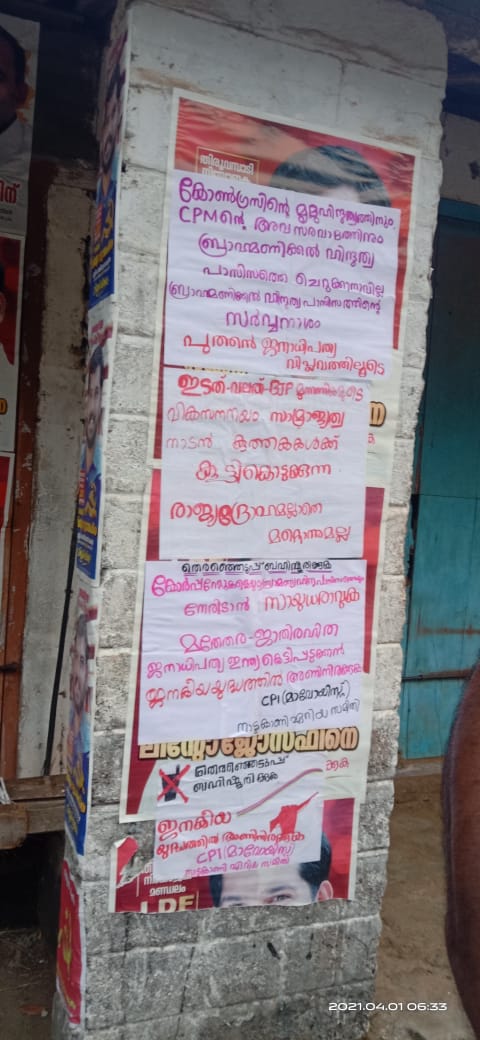 തിരുവമ്പാടി
കോൺഗ്രസിന്റെ മൃദുഹിന്ദുത്വത്തിനും,
CPMന്റെ അവസരവാദത്തിനും
ബ്രാഹ്മണിക്കൽ ഹിന്ദുത്വ
ഫാസിസത്തെ ചെറുക്കാനാവില്ല
ബ്രാഹ്മണിക്കൽ ഹിന്ദുത്വ ഫാസിസത്തിന്റെ
സർവ്വനാശം
പുത്തൻ ജനാധിപത്യ
വിപ്ലവത്തിലൂടെ
ഇടത്-വലത്-BJP മുന്നണികളുടെ
വികസനനയം സാമ്രാജ്യത്വ
നാടൻ കുത്തകകൾക്ക്
കൂട്ടിക്കൊടുക്കുന്ന
രാജ്യദ്രോഹമല്ലാതെ
മറ്റൊന്നുമല്ല
തെരഞ്ഞെടുപ്പ് ബഹിഷ്കരിക്കുക
നേരിടാൻ സായുധരാവുക
മതേതര-ജാതിരഹിത
ജനാധിപത്യ ഇന്ത്യ കെട്ടിപ്പടുക്കാൻ
ജനകീയയുദ്ധത്തിൽ അണിനിരക്കുക
CPI (മാവോയിസ്റ്റ്)
നാടുകാണി ഏരിയ സമിതി
ലിന്റോ ജോസഫിനെ
തെരഞ്ഞെടുപ്പ്
ബഹിഷ്കരിക്കുക
ജനകീയ
യുദ്ധത്തിൽ അണിനിരക്കുക
CPI (മാവോയിസ്റ്റ്)
നാടുകാണി ഏരിയ സമിതി
മണ്ഡലം
LDF
2021.04.01 06:33